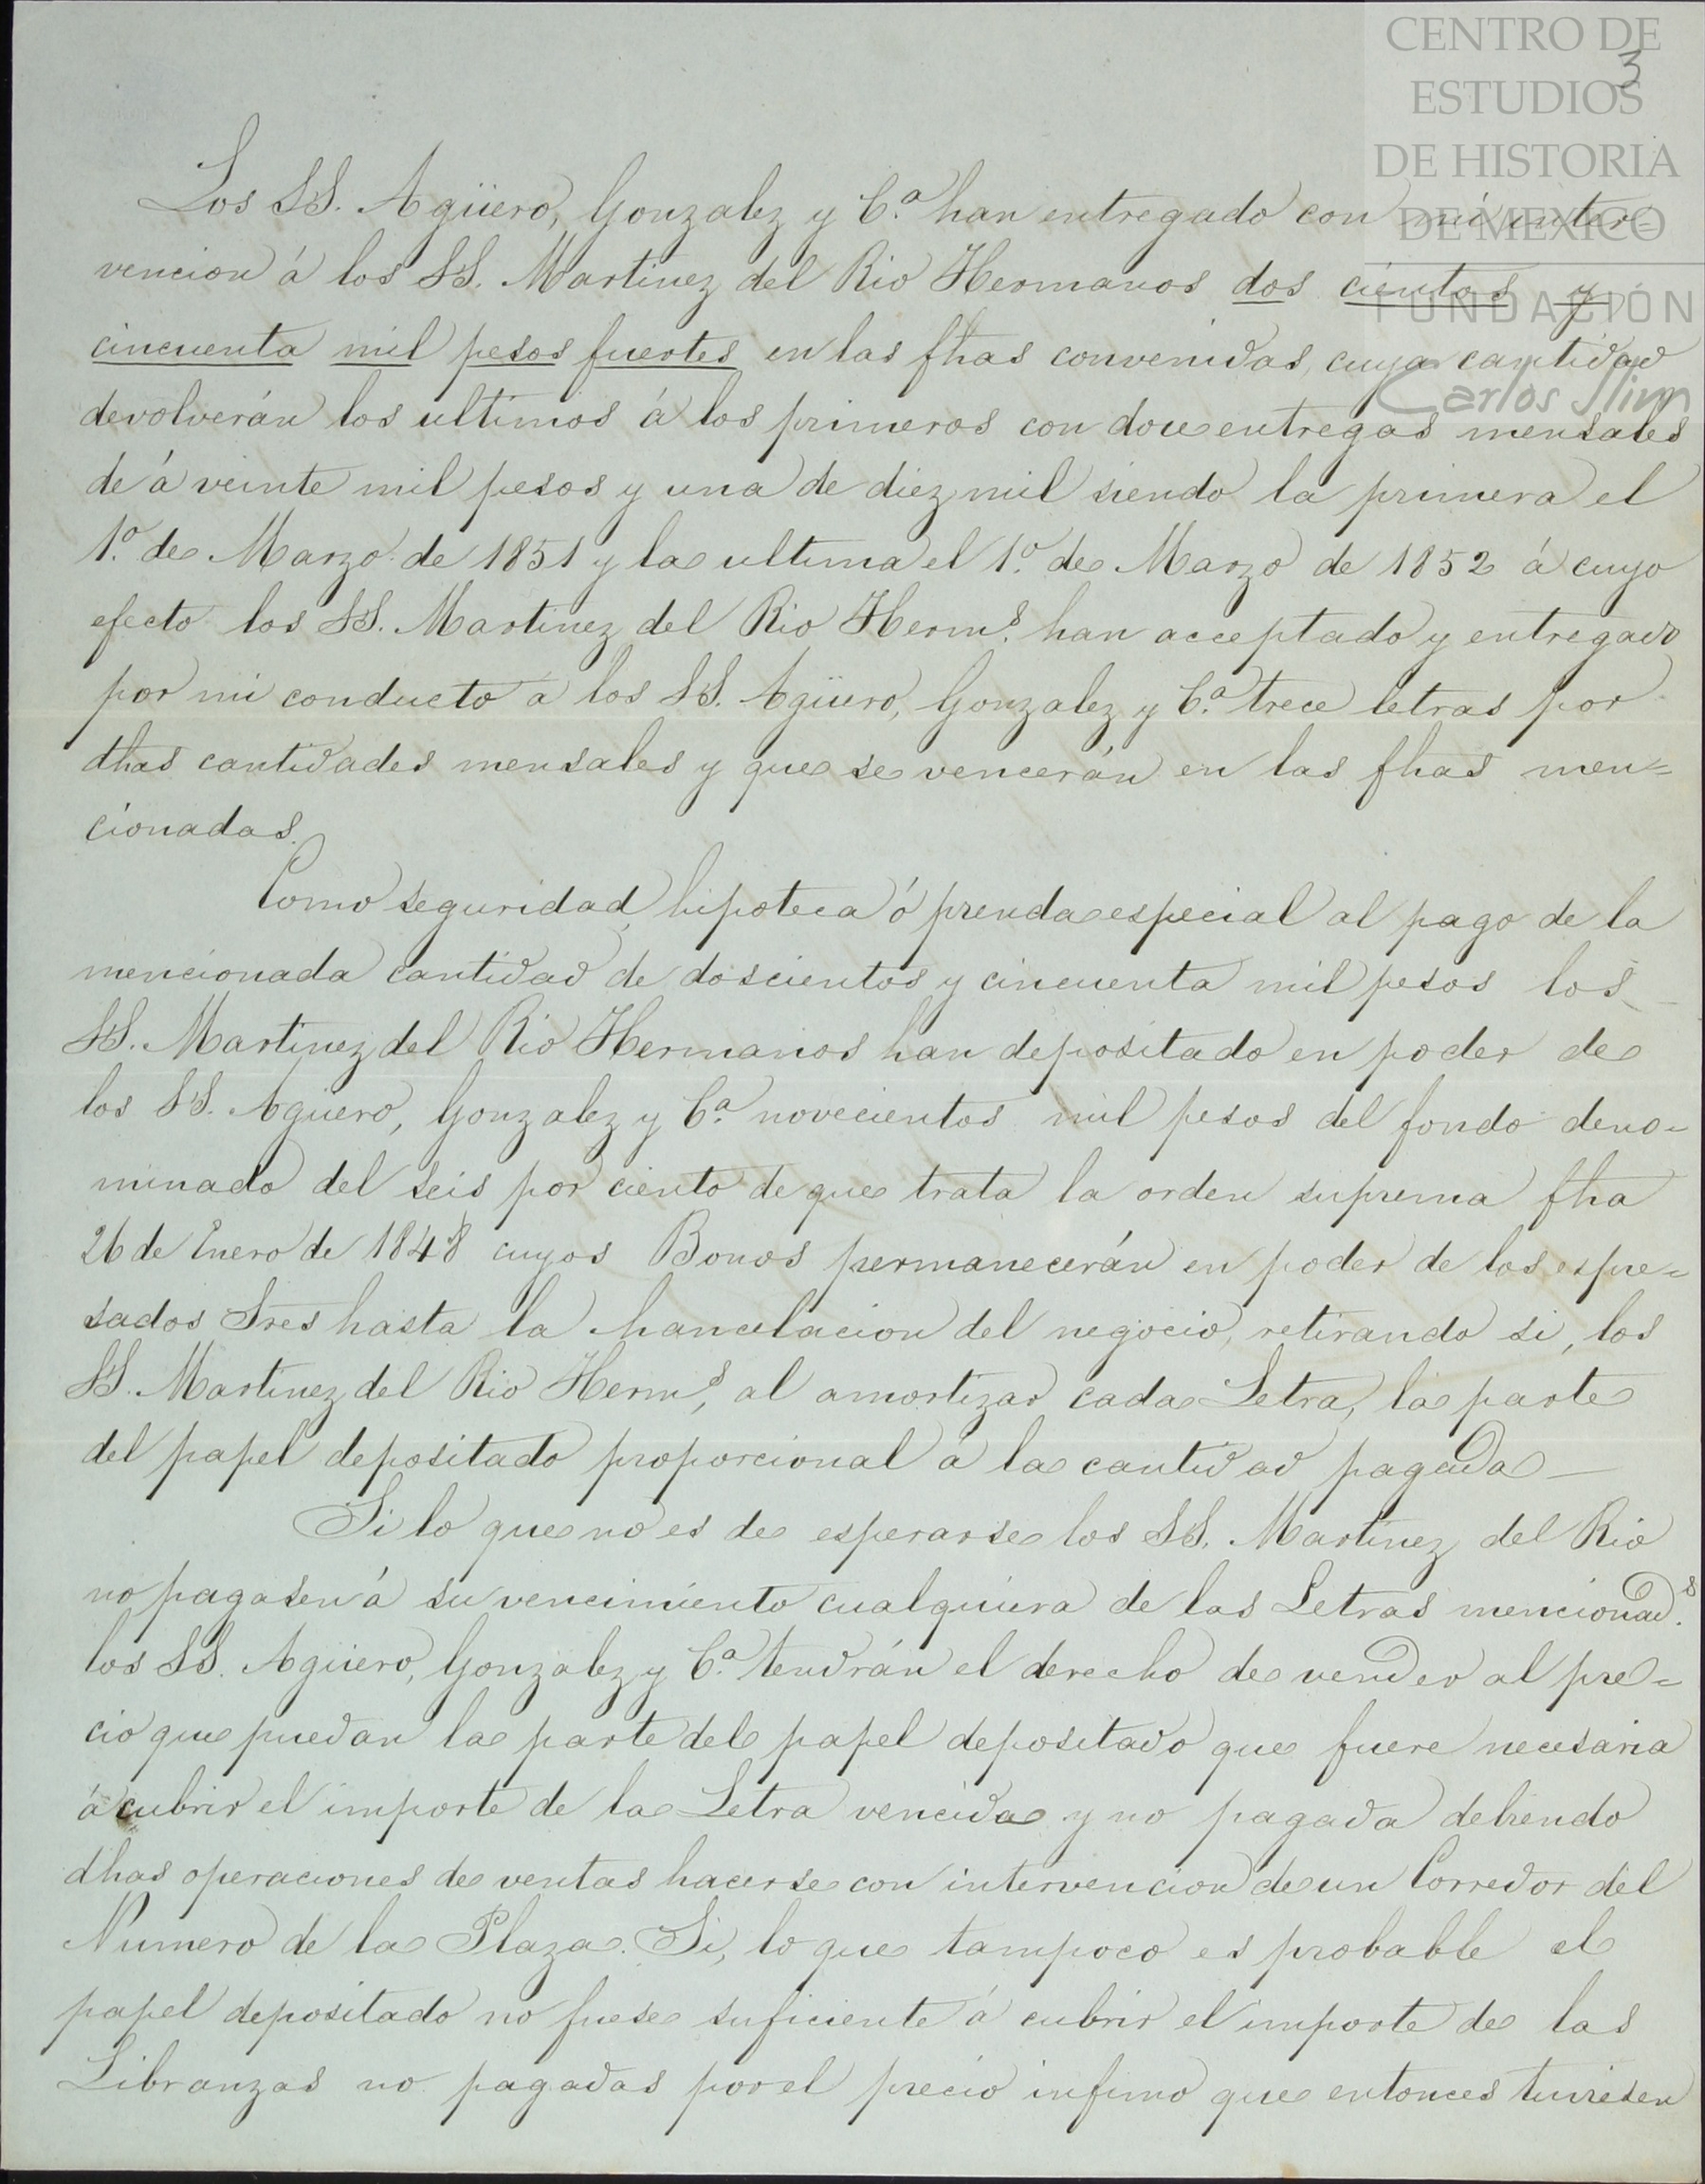 CENTRO DE
ESTUDIOS
DE HISTORIA
DE MEXICO
FUNDACIÓN
Carlos Slim
3
Los SS. Agüero, Gonzalez y Cª. han entregado con mi inter-
vencion á los SS. Martinez del Rio Hermanos dos cientos y
cincuenta mil pesos fuertes en las fhas convenidas, cuya cantidad
devolverán los ultimos á los primeros con doce entregas mensales
de á veinte mil pesos y una de diez mil siendo la primera el
1º. de Marzo de 1851 y la ultima el 1º. de Marzo de 1852 á cuyo
efecto los SS. Martinez del Rio Hermˢ. han acceptado y entregado
por mi conducto a los SS. Agüero, Gonzalez y Cª. trece letras por
dhas cantidades mensales y que se vencerán en las fhas men=
cionadas.
Como seguridad, hipoteca ó prenda especial al pago de la
mencionada cantidad de doscientos y cincuenta mil pesos los
SS. Martinez del Rio Hermanos han depositado en poder de
los SS. Agüero, Gonzalez y Cª. novecientos mil pesos del fondo deno-
minado del seis por ciento de que trata la orden suprema fha
26 de Enero de 1848 cuyos Bonos permanecerán en poder de los espre=
sados Sres hasta la hancelacion del negocio, retirando si, los
SS. Martinez del Rio Hermˢ, al amortizar cada Letra, la parte
del papel depositado proporcional a la cantidad pagada —
Si lo que no es de esperarse los SS. Martinez del Rio
no pagasen á su vencimiento cualquiera de las Letras mencionadˢ.
los SS. Agüero, Gonzalez y Cª. tendrán el derecho de vender al pre=
cio que puedan la parte del papel depositado que fuere necesaria
á cubrir el importe de la Letra vencida y no pagada debiendo
dhas operaciones de ventas hacerse con intervencion de un Corredor del
Numero de la Plaza. Si, lo que tampoco es probable el
papel depositado no fuese suficiente á cubrir el importe de las
Libranzas no pagadas por el precio infimo que entonces tuviesen